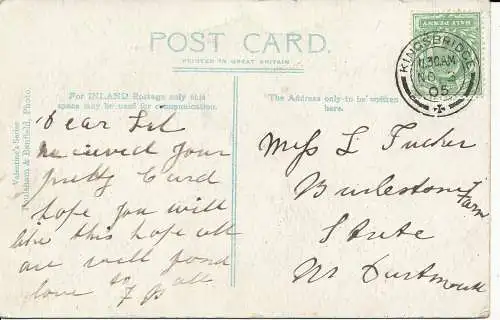 POST CARD.
PRINTED IN GREAT BRITAIN
For INLAND Postage only this
space may be used for communication.
The Address only to be written
here.
HALF PENNY
KINGSBRIDGE
11.30AM
NO
05
Valentine's Series
Houlsham & Banfield, Photo
Dear Lil
received your
pretty Card
hope you will
like this hope all
are well fond
love to all
Miss L Tucker
Burlestone Farm
Strete
Nr Dartmouth